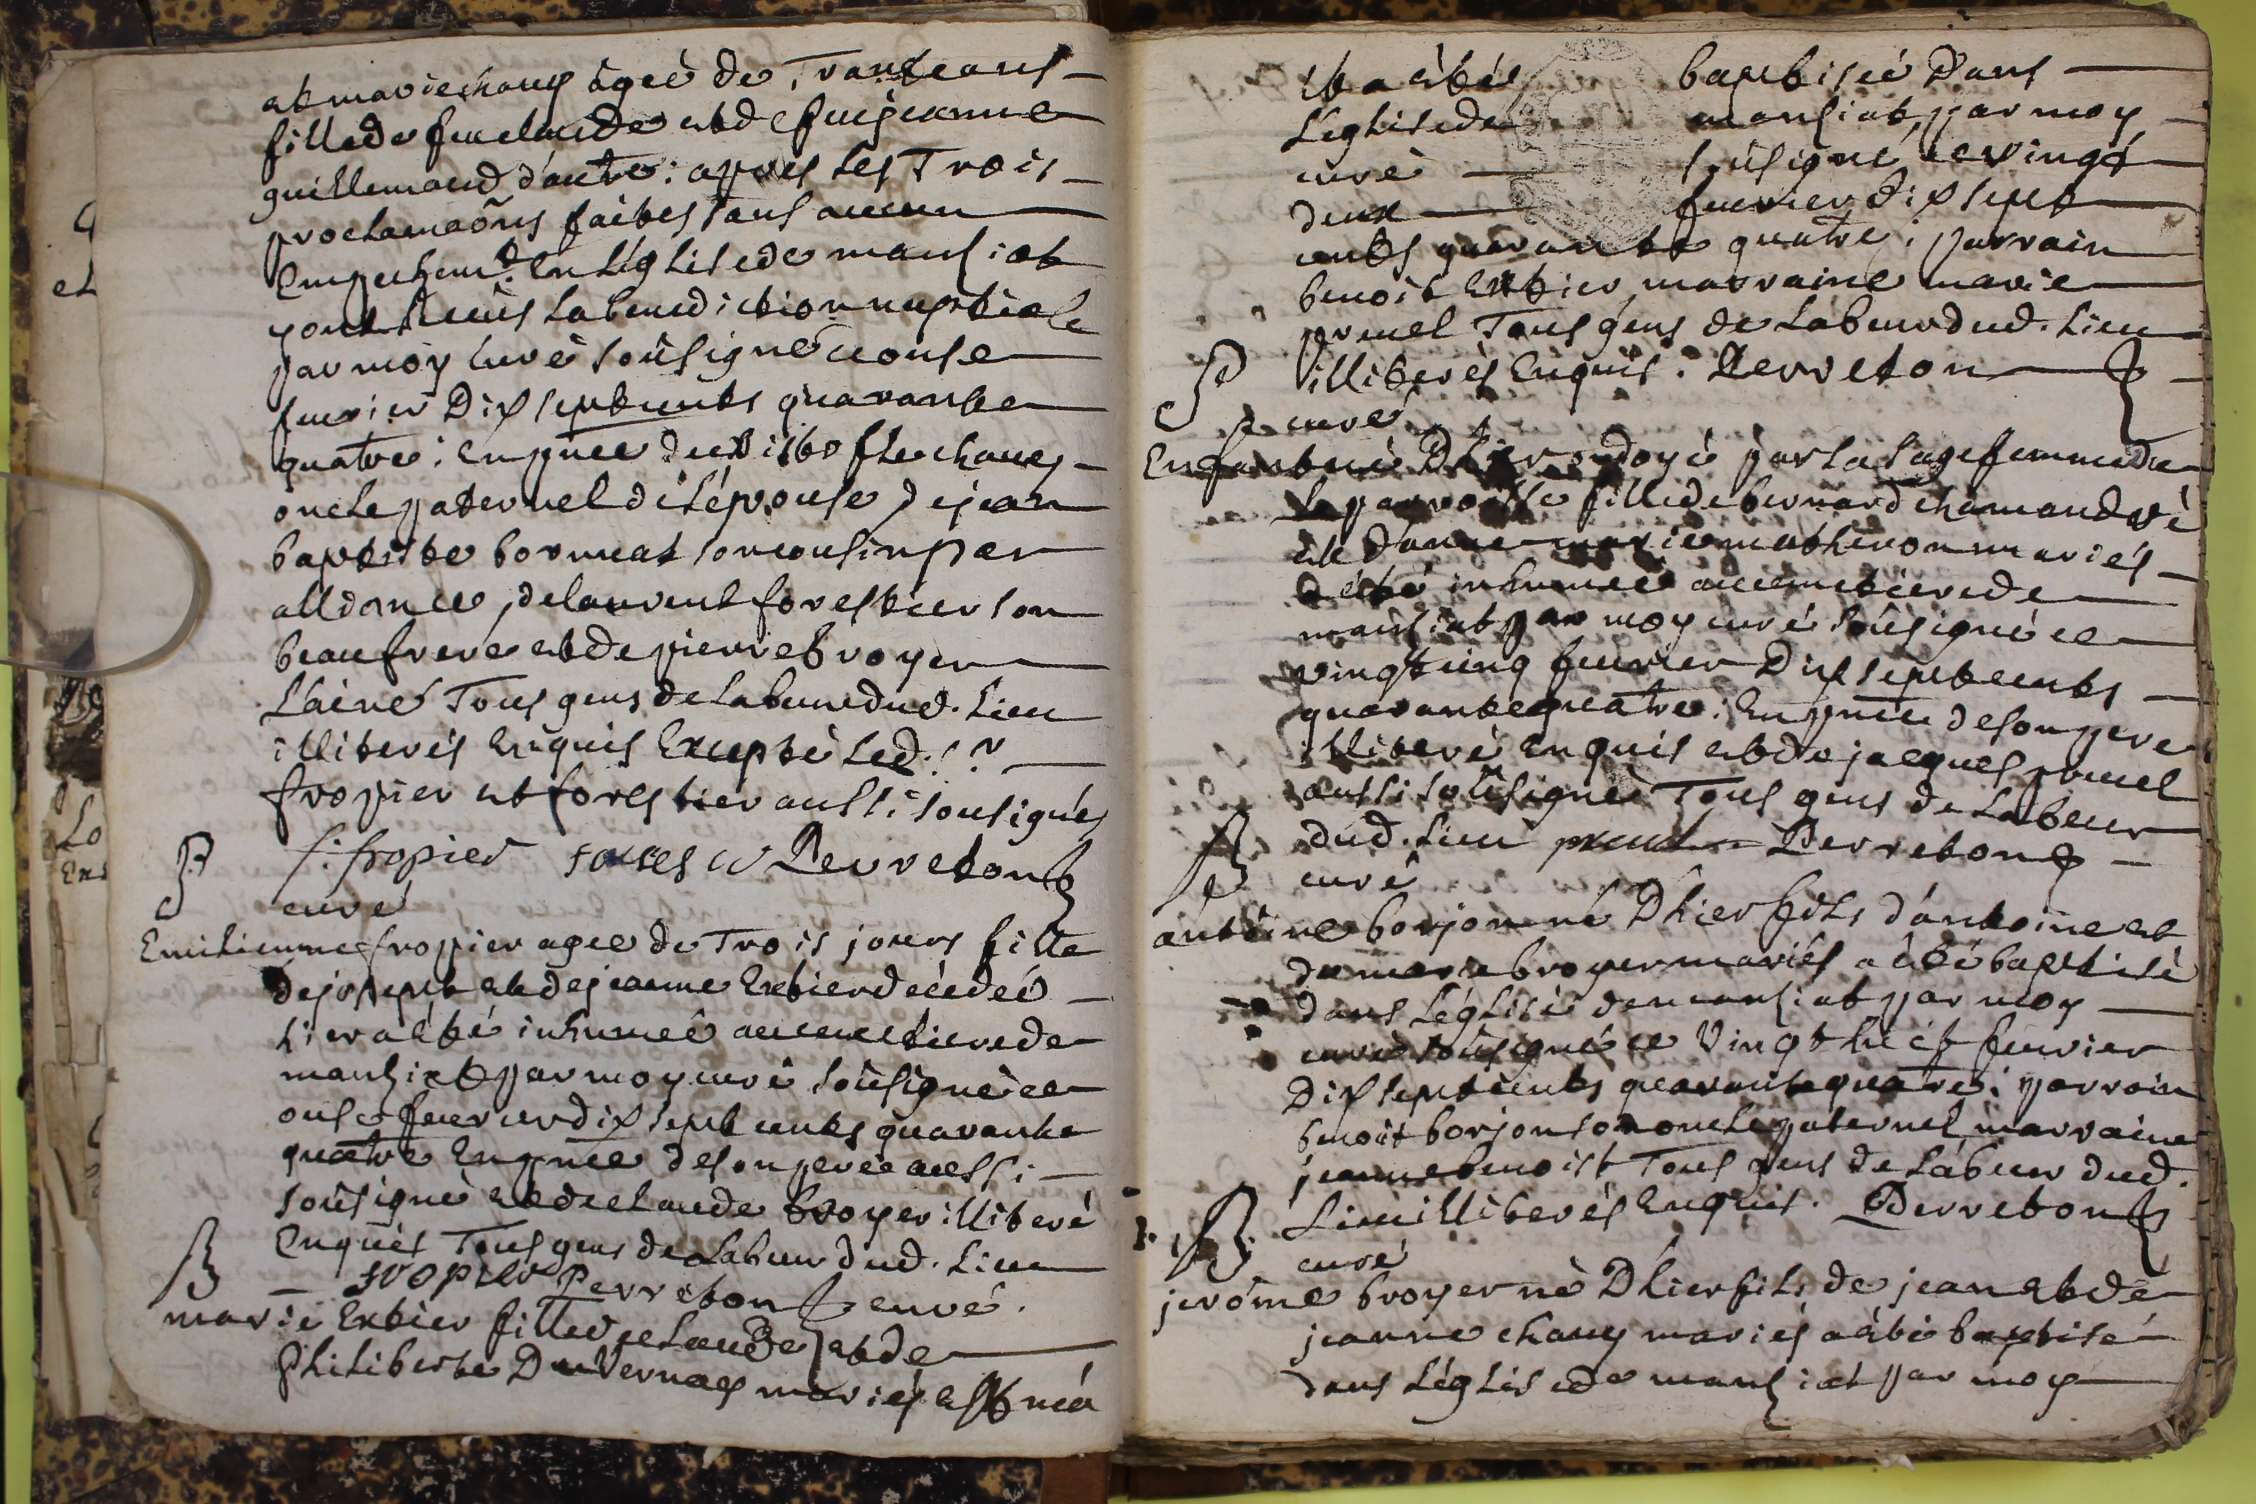 et marie chany âgée de Trante ans
fille de feu claude et de feu jeanne
guillemaud d'autre : apres les Trois
proclamaõns faites sans aucun
Empechem.t En l'église de manziat
y ont Reçus la benediction nuptiale
par moy curé soûsigné ce onse
feuvrier Dix sept cents quarante
quatre : En pñce de
oncle paternel de l'épouse, de jean
baptiste bormat son cousin par
alliance, de laurent forestier son
beaufrere et de pierre broyer
L'aîné Tous gens de labeur dud. Lieu
illiterés Enquis Excepté led. s.r
fropier et forestier aussi sousignés
f: fropier Perreton
curé
Emilienne fropier agée de Trois jours fille
de joseph et de jeanne Extier décédée
hier a été inhumée au cimetiere de
manziat par moy curé soûsigné ce
onse feuvrier dix sept cents quarante
quatre En pñce de son pere aussi
soûsigné et de claude broyer illiteré
Enquis Tous gens de Labeur dud. Lieu
fropier Perreton curé.
marie Extier fille de claude et de
philiberte Duvernay mariés est née
et a étés baptisée dans
L'église de manziat, par moy
curé soûsigné ce vingt
deux feuvrier dix sept
cents quarante quatre : parrain
benoit Extier, marraine marie
pruel Tous gens de Labeur dud. Lieu
illiterés Enquis. Perreton
curé
Enfant né D'hier ondoyé par la sage femme de
la parroisse fille de bernard chamandré
et d'anne marie matheron mariés
a été inhumée au cimetiere de
manziat par moy curé soûsigné ce
vingt cinq feuvrier Dix sept cents
quarante quatre : En pñce de son pere
illiteré Enquis et de jacques pruel
aussi soûsigné Tous gens de Labeur
dud. Lieu pruel Perreton
curé
antoine borjon né D'hier fils d'antoine et
de marie broyer mariés a été baptisé
dans L'église de manziat par moy
curé soûsigné ce Vingt huict feuvrier
Dix sept cents quarante quatre : parrain
benoit borjon son oncle paternel, marraine
jeanne benoist Tous gens de Labeur dud.
Lieu illiterés Enquis. Perreton
curé
jerôme broyer né D'hier fils de jean et de
jeanne chany mariés a été baptisé
dans L'église de manziat par moy